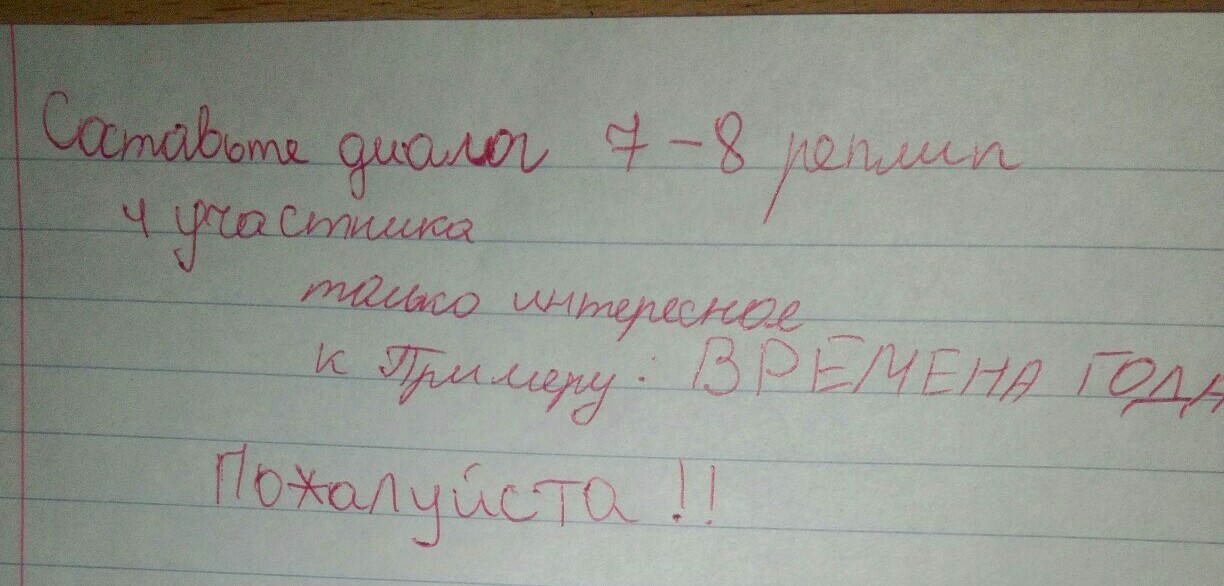 Составьте диалог 7-8 реплик
4 участника
только интересное
к Примеру: ВРЕМЕНА ГОДА
Пожалуйста!!